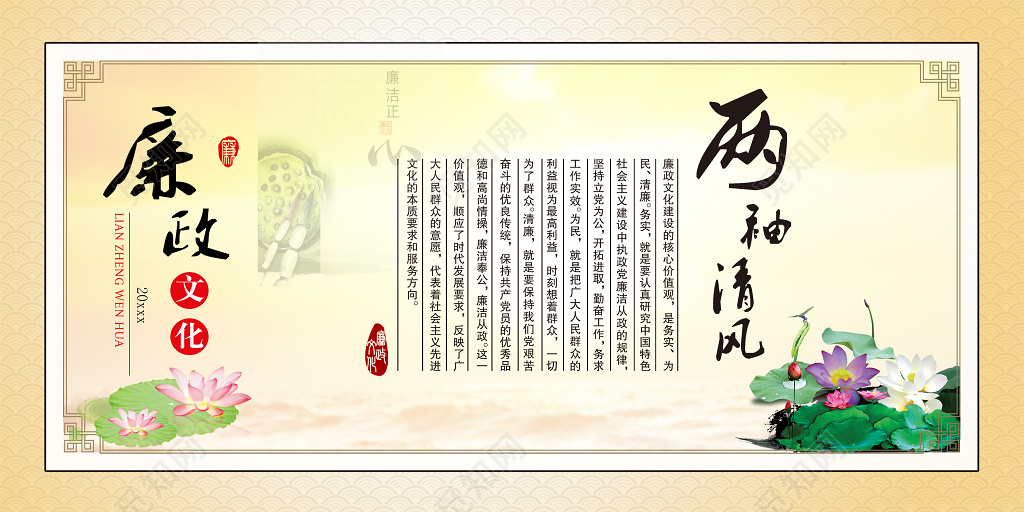 两袖清风
廉政文化建设的核心价值观，是务实、为
民、清廉。务实，就是要认真研究中国特色
社会主义建设中执政党廉洁从政的规律，
坚持立党为公，开拓进取，勤奋工作，务求
工作实效。为民，就是把广大人民群众的
利益视为最高利益，时刻想着群众，一切
为了群众。清廉，就是要保持我们党艰苦
奋斗的优良传统，保持共产党员的优秀品
德和高尚情操，廉洁奉公，廉洁从政。这一
价值观，顺应了时代发展要求，反映了广
大人民群众的意愿，代表着社会主义先进
文化的本质要求和服务方向。
廉政文化
廉洁正
心
廉
廉政
文化
LIAN ZHENG WEN HUA
20xxx
觅知网